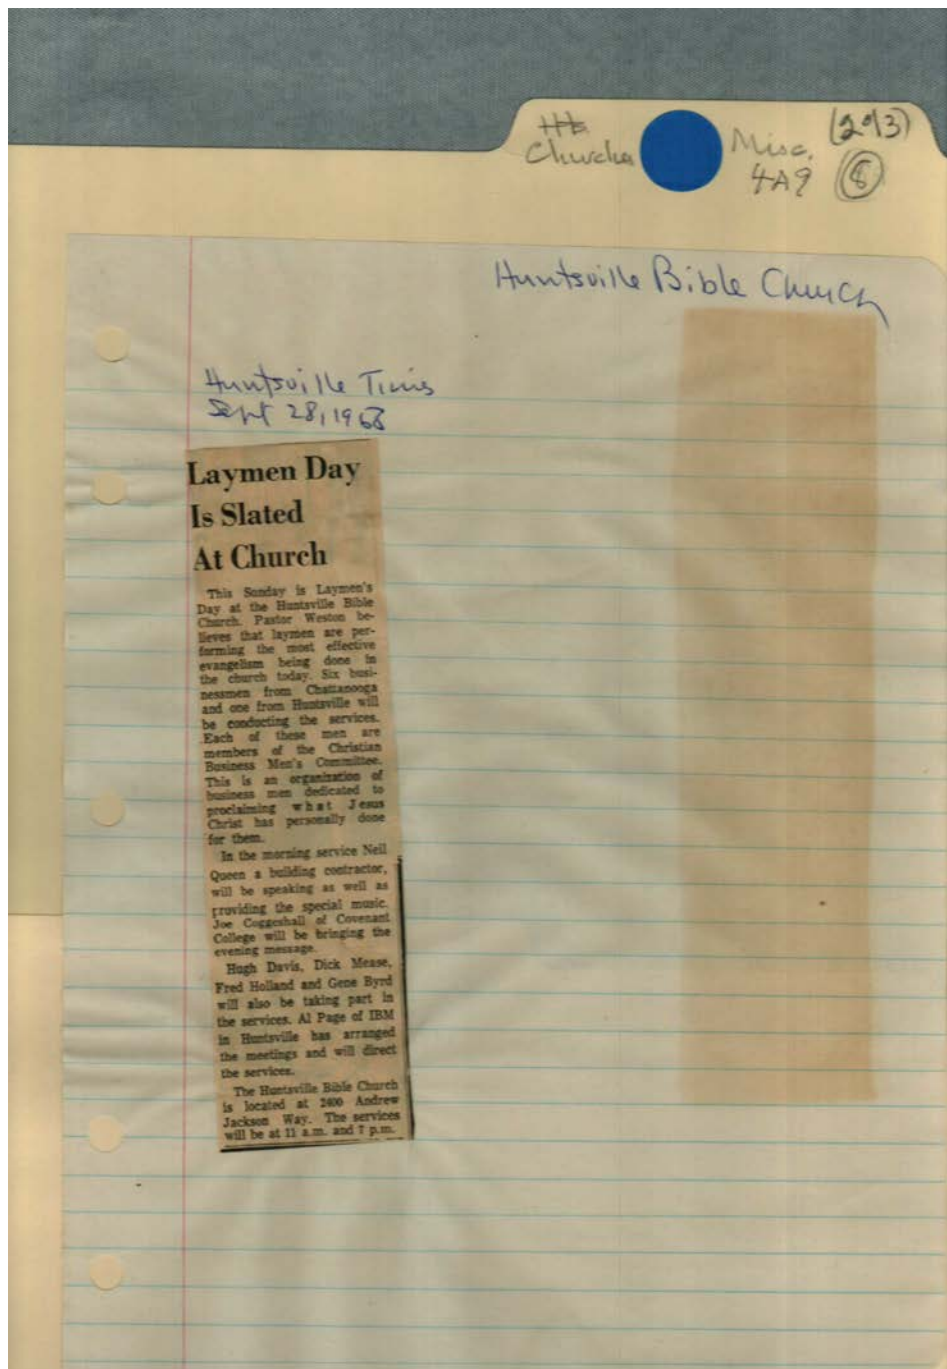 Churches Misc. (293)
4A9 8
Huntsville Bible Church
Huntsville Times
Sept 28, 1968
Laymen Day
Is Slated
At Church
This Sunday is Laymen's
Day at the Huntsville Bible
Church. Pastor Weston be-
lieves that laymen are per-
forming the most effective
evangelism being done in
the church today. Six busi-
nessmen from Chattanooga
and one from Huntsville will
be conducting the services.
Each of these men are
members of the Christian
Business Men's Committee.
This is an organization of
business men dedicated to
proclaiming what Jesus
Christ has personally done
for them.
In the morning service Neil
Queen a building contractor,
will be speaking as well as
providing the special music.
Joe Coggeshall of Covenant
College will be bringing the
evening message.
Hugh Davis, Dick Mease,
Fred Holland and Gene Byrd
will also be taking part in
the services. Al Page of IBM
in Huntsville has arranged
the meetings and will direct
the services.
The Huntsville Bible Church
is located at 2400 Andrew
Jackson Way. The services
will be at 11 a.m. and 7 p.m.